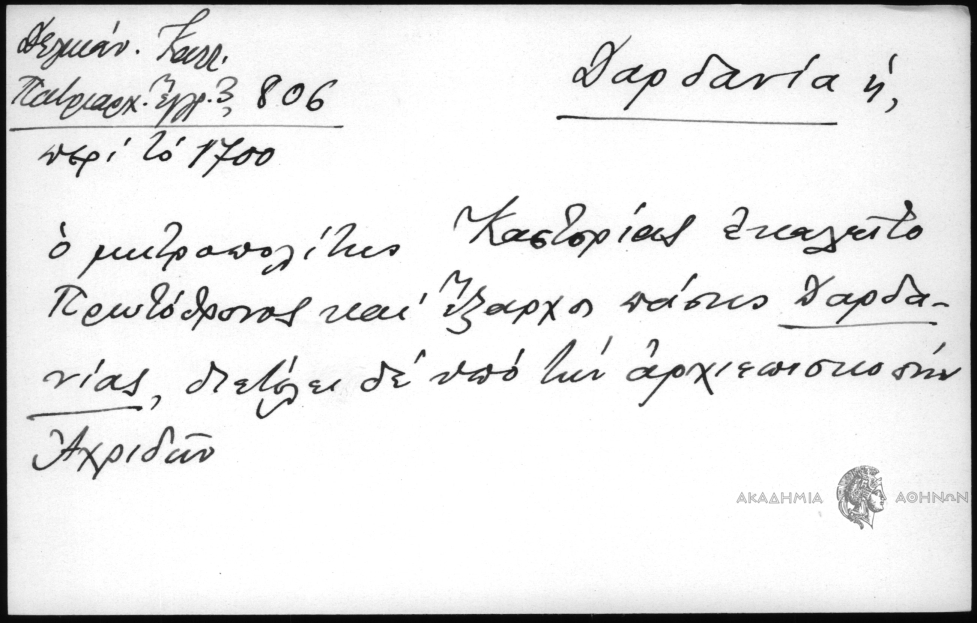 Δελικάν. Καλλ.
Πατριαρχ. Ἔγγρ. 3, 806
περί τό 1700
Δαρδανία ἡ,
ὁ μητροπολίτης Καστορίας ἐκαλεῖτο
Πρωτόθρονος καί Ἔξαρχος πάσης Δαρδα-
νίας, διετέλει δέ ὑπό τήν ἀρχιεπισκοπήν
Ἀχριδῶν
ΑΚΑΔΗΜΙΑ ΑΘΗΝΩΝ